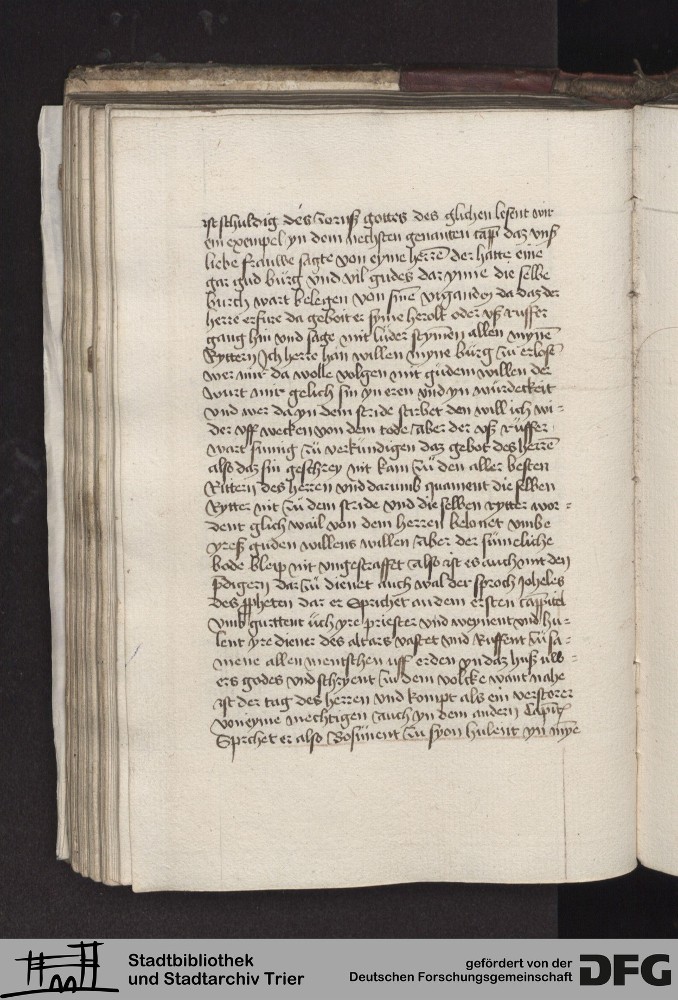 ist schuldig des zornß gottes des glichen lesent wir
ein exempel yn dem nechsten genanten capp daz vnß
liebe frauwe sagte von eyme herrē der hatte eine
gar gud bürg vnd vil gudes dar ynne die selbe
burch wart belegen von sinē viganden da daz der
herre erfure da gebeit er syme herolt oder vß ruffer
gang hin vnd sage mit luder stymen allen mynē
Ryttern Ich herre han willen myne bürg zü erlosē
wer mir da wolle volgen mit gudem willen der
wurt mir gelich sin yn eren vnd yn würdeckeit
vnd wer da yn dem stride stirbet den will ich wi=
der vff wecken von dem tode aber der vß rüffer
wart sumig zü verkündigen daz gebot des herrē
also daz sin geschrey nit kam zü den aller besten
Rittern des herren vnd darumb quament die selben
Rytter nit zü dem stride vnd die selben rytter wor=
dent glich wail von dem herren belonet vmbe
yreß guden willens willen aber der sümeliche
bode bleip nit vngestraffet also ist es auch mit den
pdigern dar zü dienet auch wal der sproch Joheles
des ppheten dar er sprichet an dem ersten cappitel
vmb gurttent üch yre priester vnd weynent vnd hu=
lent yre diener des altars vastet vnd Ruffent zü sa=
mene allen mentschen vff erden yn daz huß uw=
ers godes vnd schryent zü dem volcke want nahe
ist der tag des herren vnd kompt als ein verstorer
von eyme mechtigen auch yn dem andern Capitl
Sprchet er also Bosünent zü syon hulent yn myē
Stadtbibliothek
und Stadtarchiv Trier
gefördert von der
Deutschen Forschungsgemeinschaft
DFG